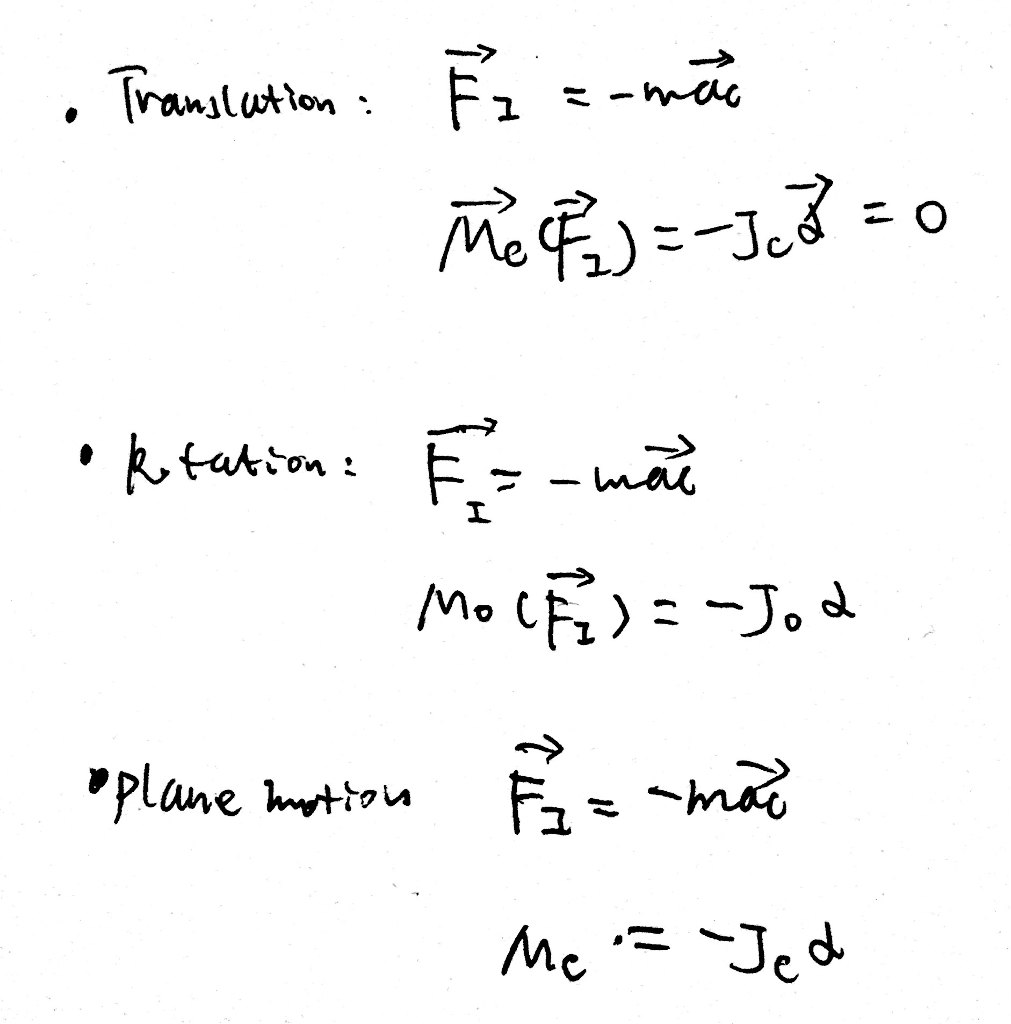 • Translation: $\vec{F_I} = -m\vec{a_c}$
$\vec{M_c}(\vec{F_I}) = -J_c\vec{\alpha} = 0$
• Rotation: $\vec{F_I} = -m\vec{a_c}$
$M_o(\vec{F_I}) = -J_o \alpha$
• plane motion $\vec{F_I} = -m\vec{a_c}$
$M_c = -J_c \alpha$